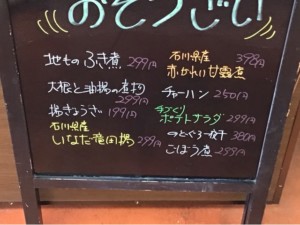 おそうざい
地もの ふき煮 299円
大根と油揚の煮物
299円
揚ぎょうざ 199円
石川県産
いなだ竜田揚 299円
石川県産 398円
赤かれい甘露煮
チャーハン 250円
手づくり
ポテトサラダ 299円
のどぐろ一夜干 380円
ごぼう煮 299円